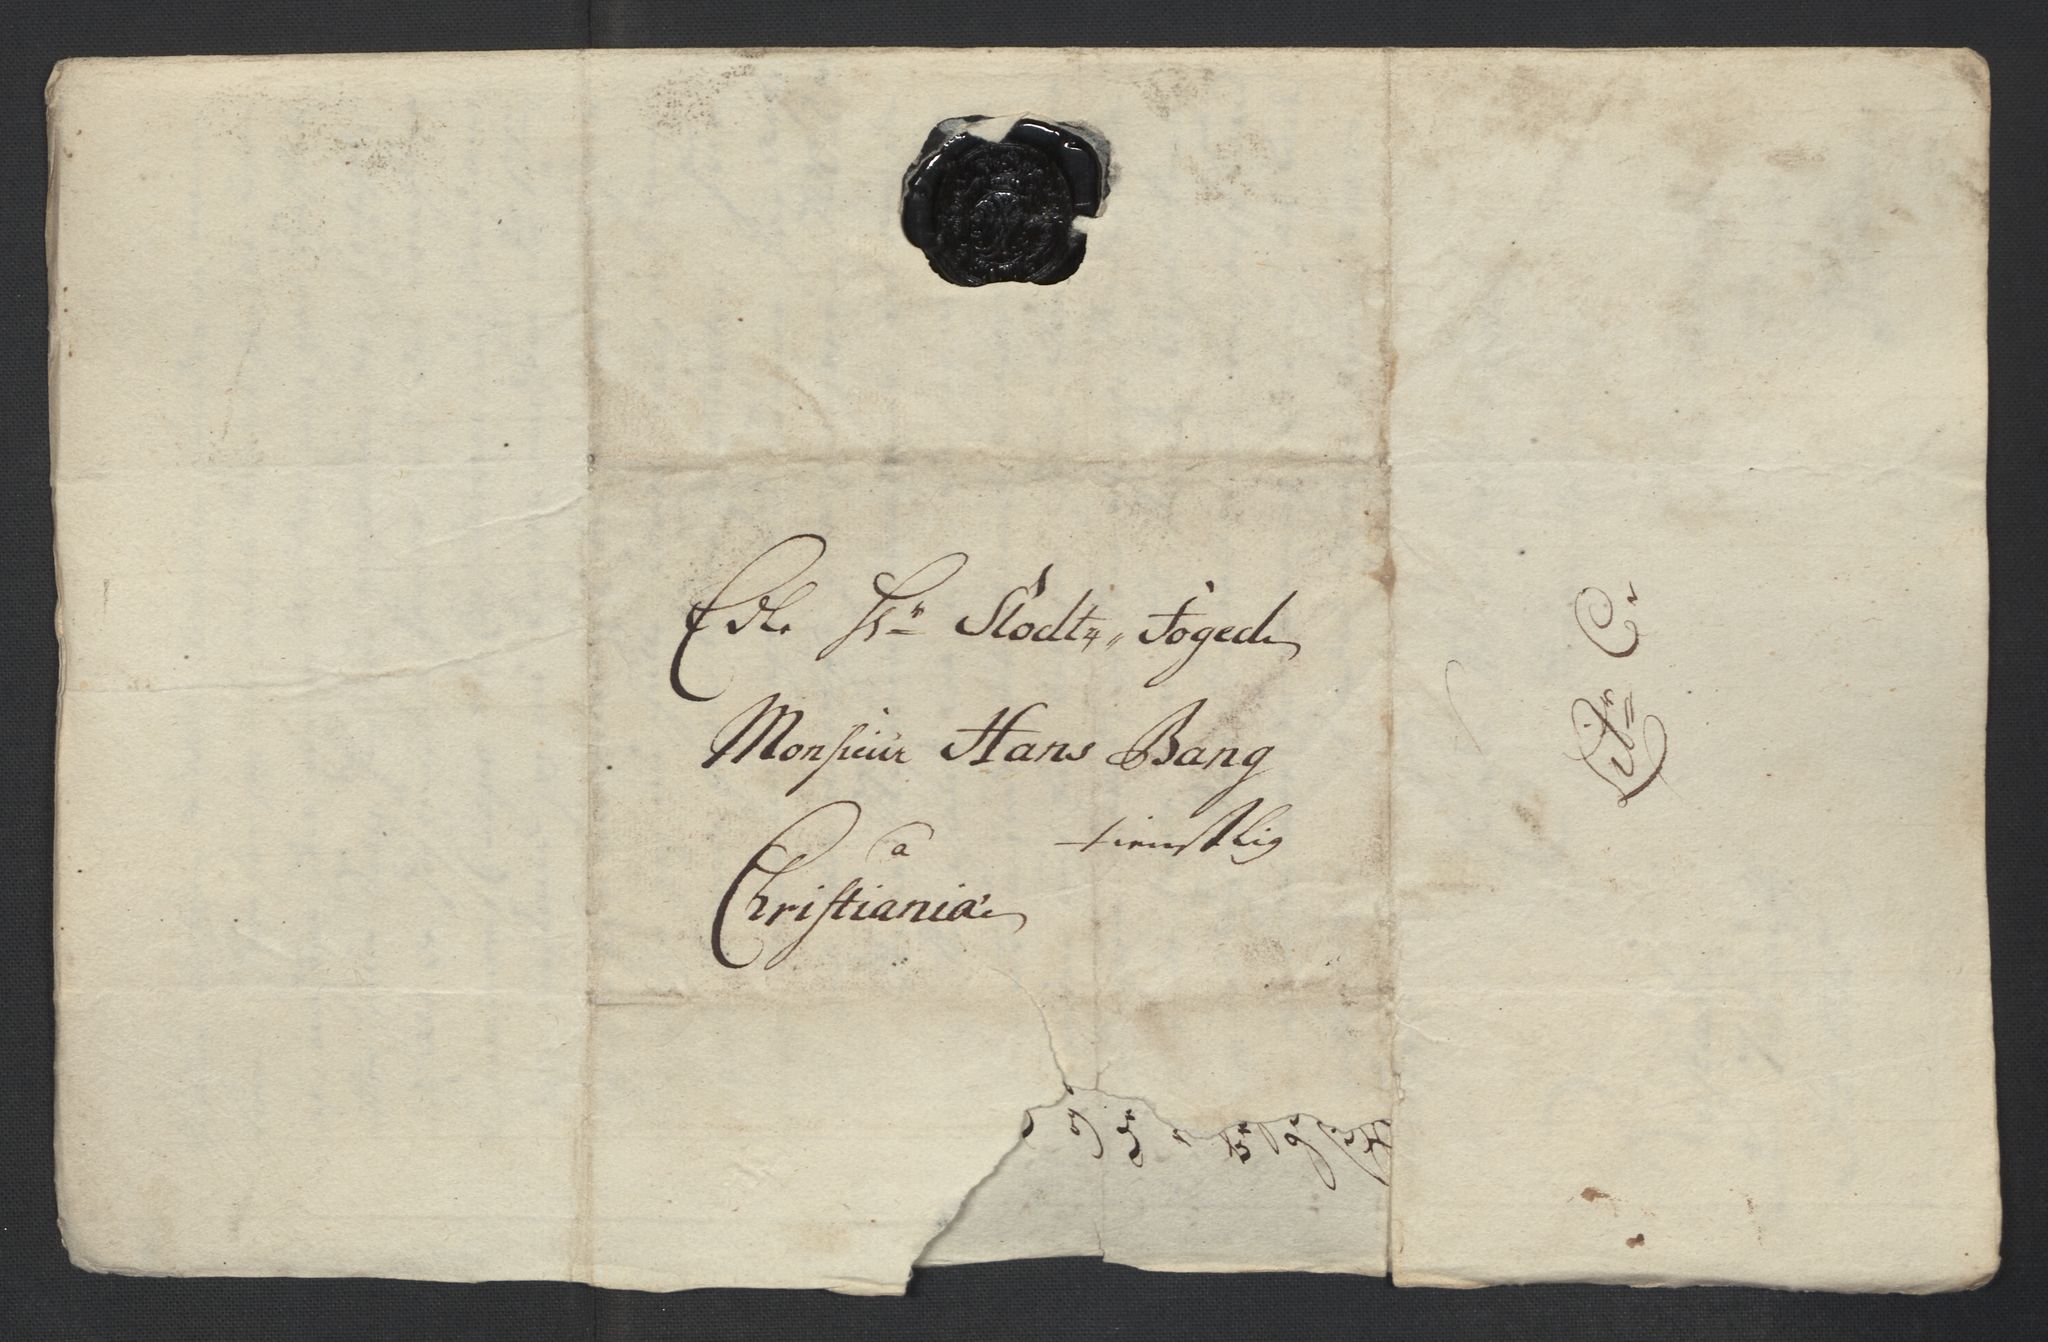 Edle Hr Slodtz Foged
Monsieur Hans Bang
tienstlig
a
Christiania
Litr C